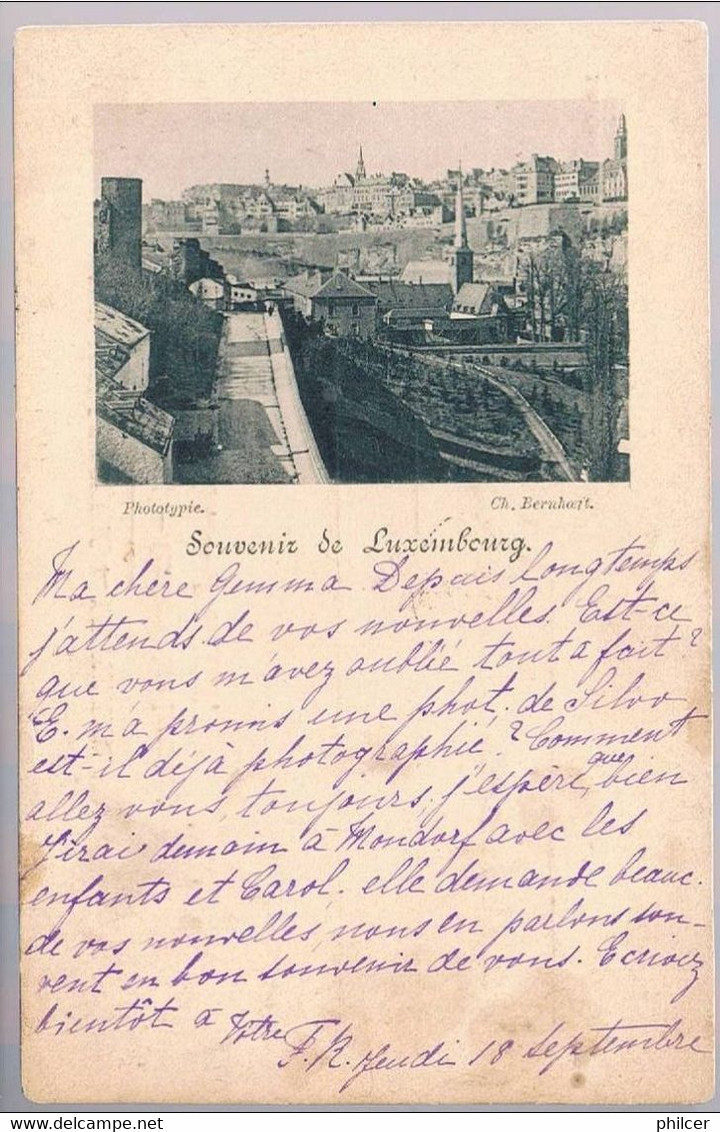 Phototypie.
Ch. Bernhœft.
Souvenir de Luxembourg.
Ma chère Gemma. Depuis longtemps
j'attends de vos nouvelles. Est-ce
que vous m'avez oublié tout a fait?
E. m'a promis une phot. de Silvo
est-il déjà photographié? Comment
allez vous, toujours, j'espère, que bien
J'irai demain à Mondorf avec les
enfants et Carol. elle demande beauc.
de vos nouvelles, nous en parlons sou-
vent en bon souvenir de vous. Ecrivez
bientôt à Votre
F. R. Jeudi 18 Septembre
philcer
philcer